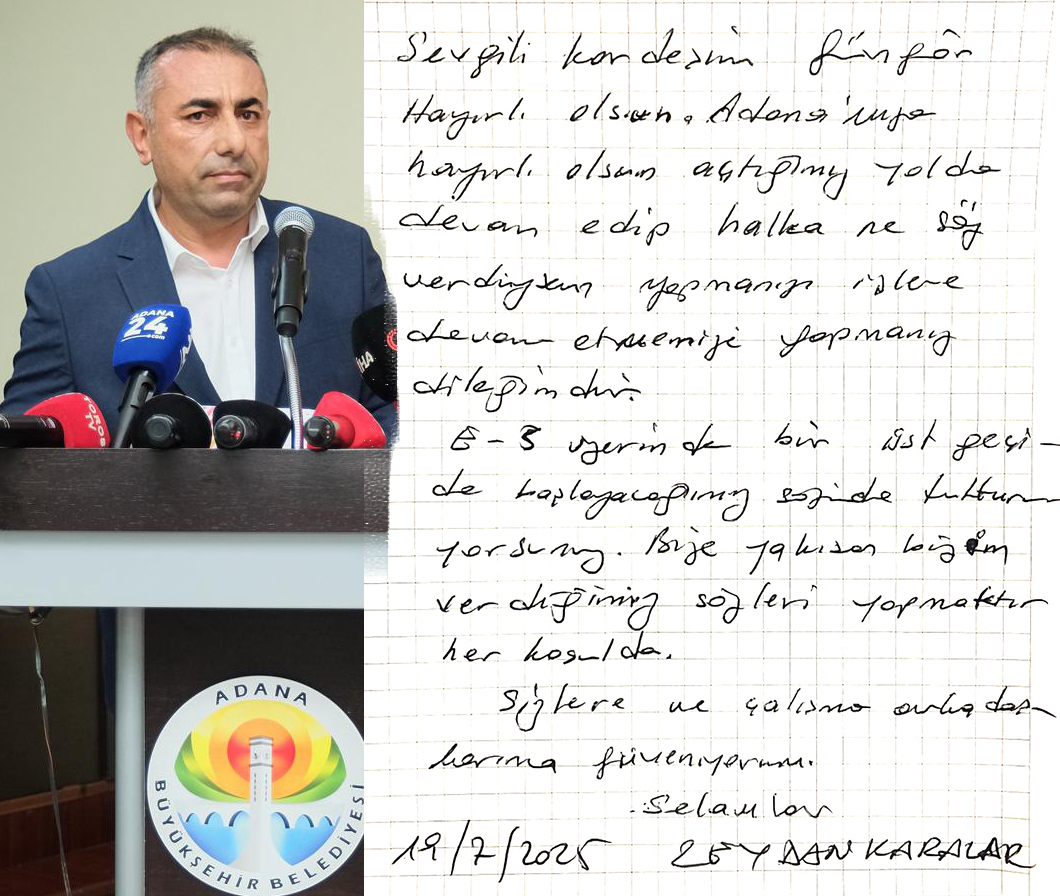 ADANA
24
.com
İHA
TV
ADANA
BÜYÜKŞEHİR BELEDİYESİ
Sevgili kardeşim Güngör
Hayırlı olsun. Adana'mıza
hayırlı olsun açtığımız yolda
devam edip halka ne söz
verdiysem yapmanızı işlere
devam etmenizi yapmanız
dileğimdir.
E-5 üzerinde bir üst geçi-
de başlayacağımız sözünde tutturu
yorsunuz. Bize yakışan bizim
verdiğimiz sözleri yapmaktır
her koşulda.
Sizlere ve çalışma arkadaş
larıma güveniyorum.
Selamlar
19/7/2025 ZEYDAN KARALAR